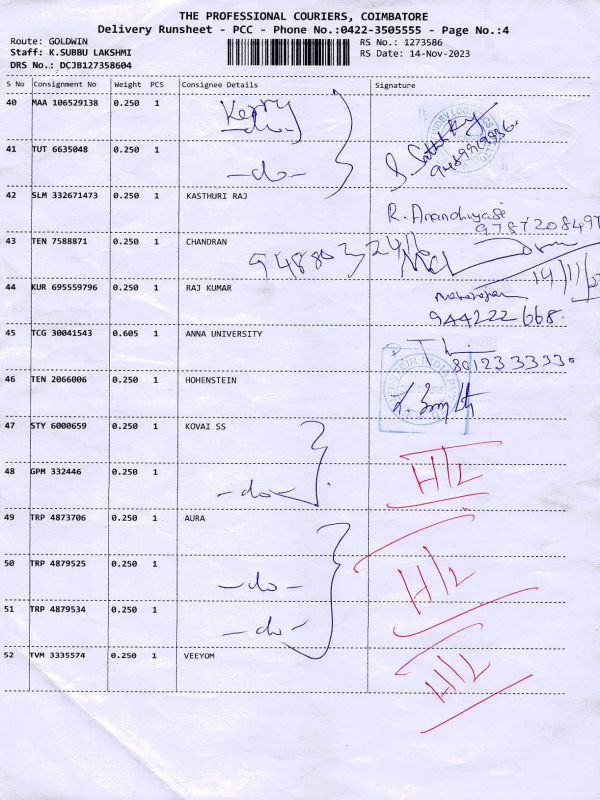 THE PROFESSIONAL COURIERS, COIMBATORE
Delivery Runsheet - PCC - Phone No.:0422-3505555 - Page No.:4
Route: GOLDWIN RS No.: 1273586
Staff: K.SUBBU LAKSHMI RS Date: 14-Nov-2023
DRS No.: DCJB127358604
S No Consignment No Weight PCS Consignee Details Signature
40 MAA 106529138 0.250 1 Kerry
-do-
41 TUT 6635048 0.250 1
-do-
42 SLM 332671473 0.250 1 KASTHURI RAJ
R. Anandhiyasi
9787208497
43 TEN 7588871 0.250 1 CHANDRAN
9488032411
14/11/23
44 KUR 695559796 0.250 1 RAJ KUMAR
944222668
45 TCG 30041543 0.605 1 ANNA UNIVERSITY
8012333330
46 TEN 2066006 0.250 1 HOHENSTEIN
47 STY 6000659 0.250 1 KOVAI SS
H/L
48 GPM 332446 0.250 1 -do-
49 TRP 4873706 0.250 1 AURA
50 TRP 4879525 0.250 1 -do- H/L
51 TRP 4879534 0.250 1 -do-
52 TVM 3335574 0.250 1 VEEYOM H/L